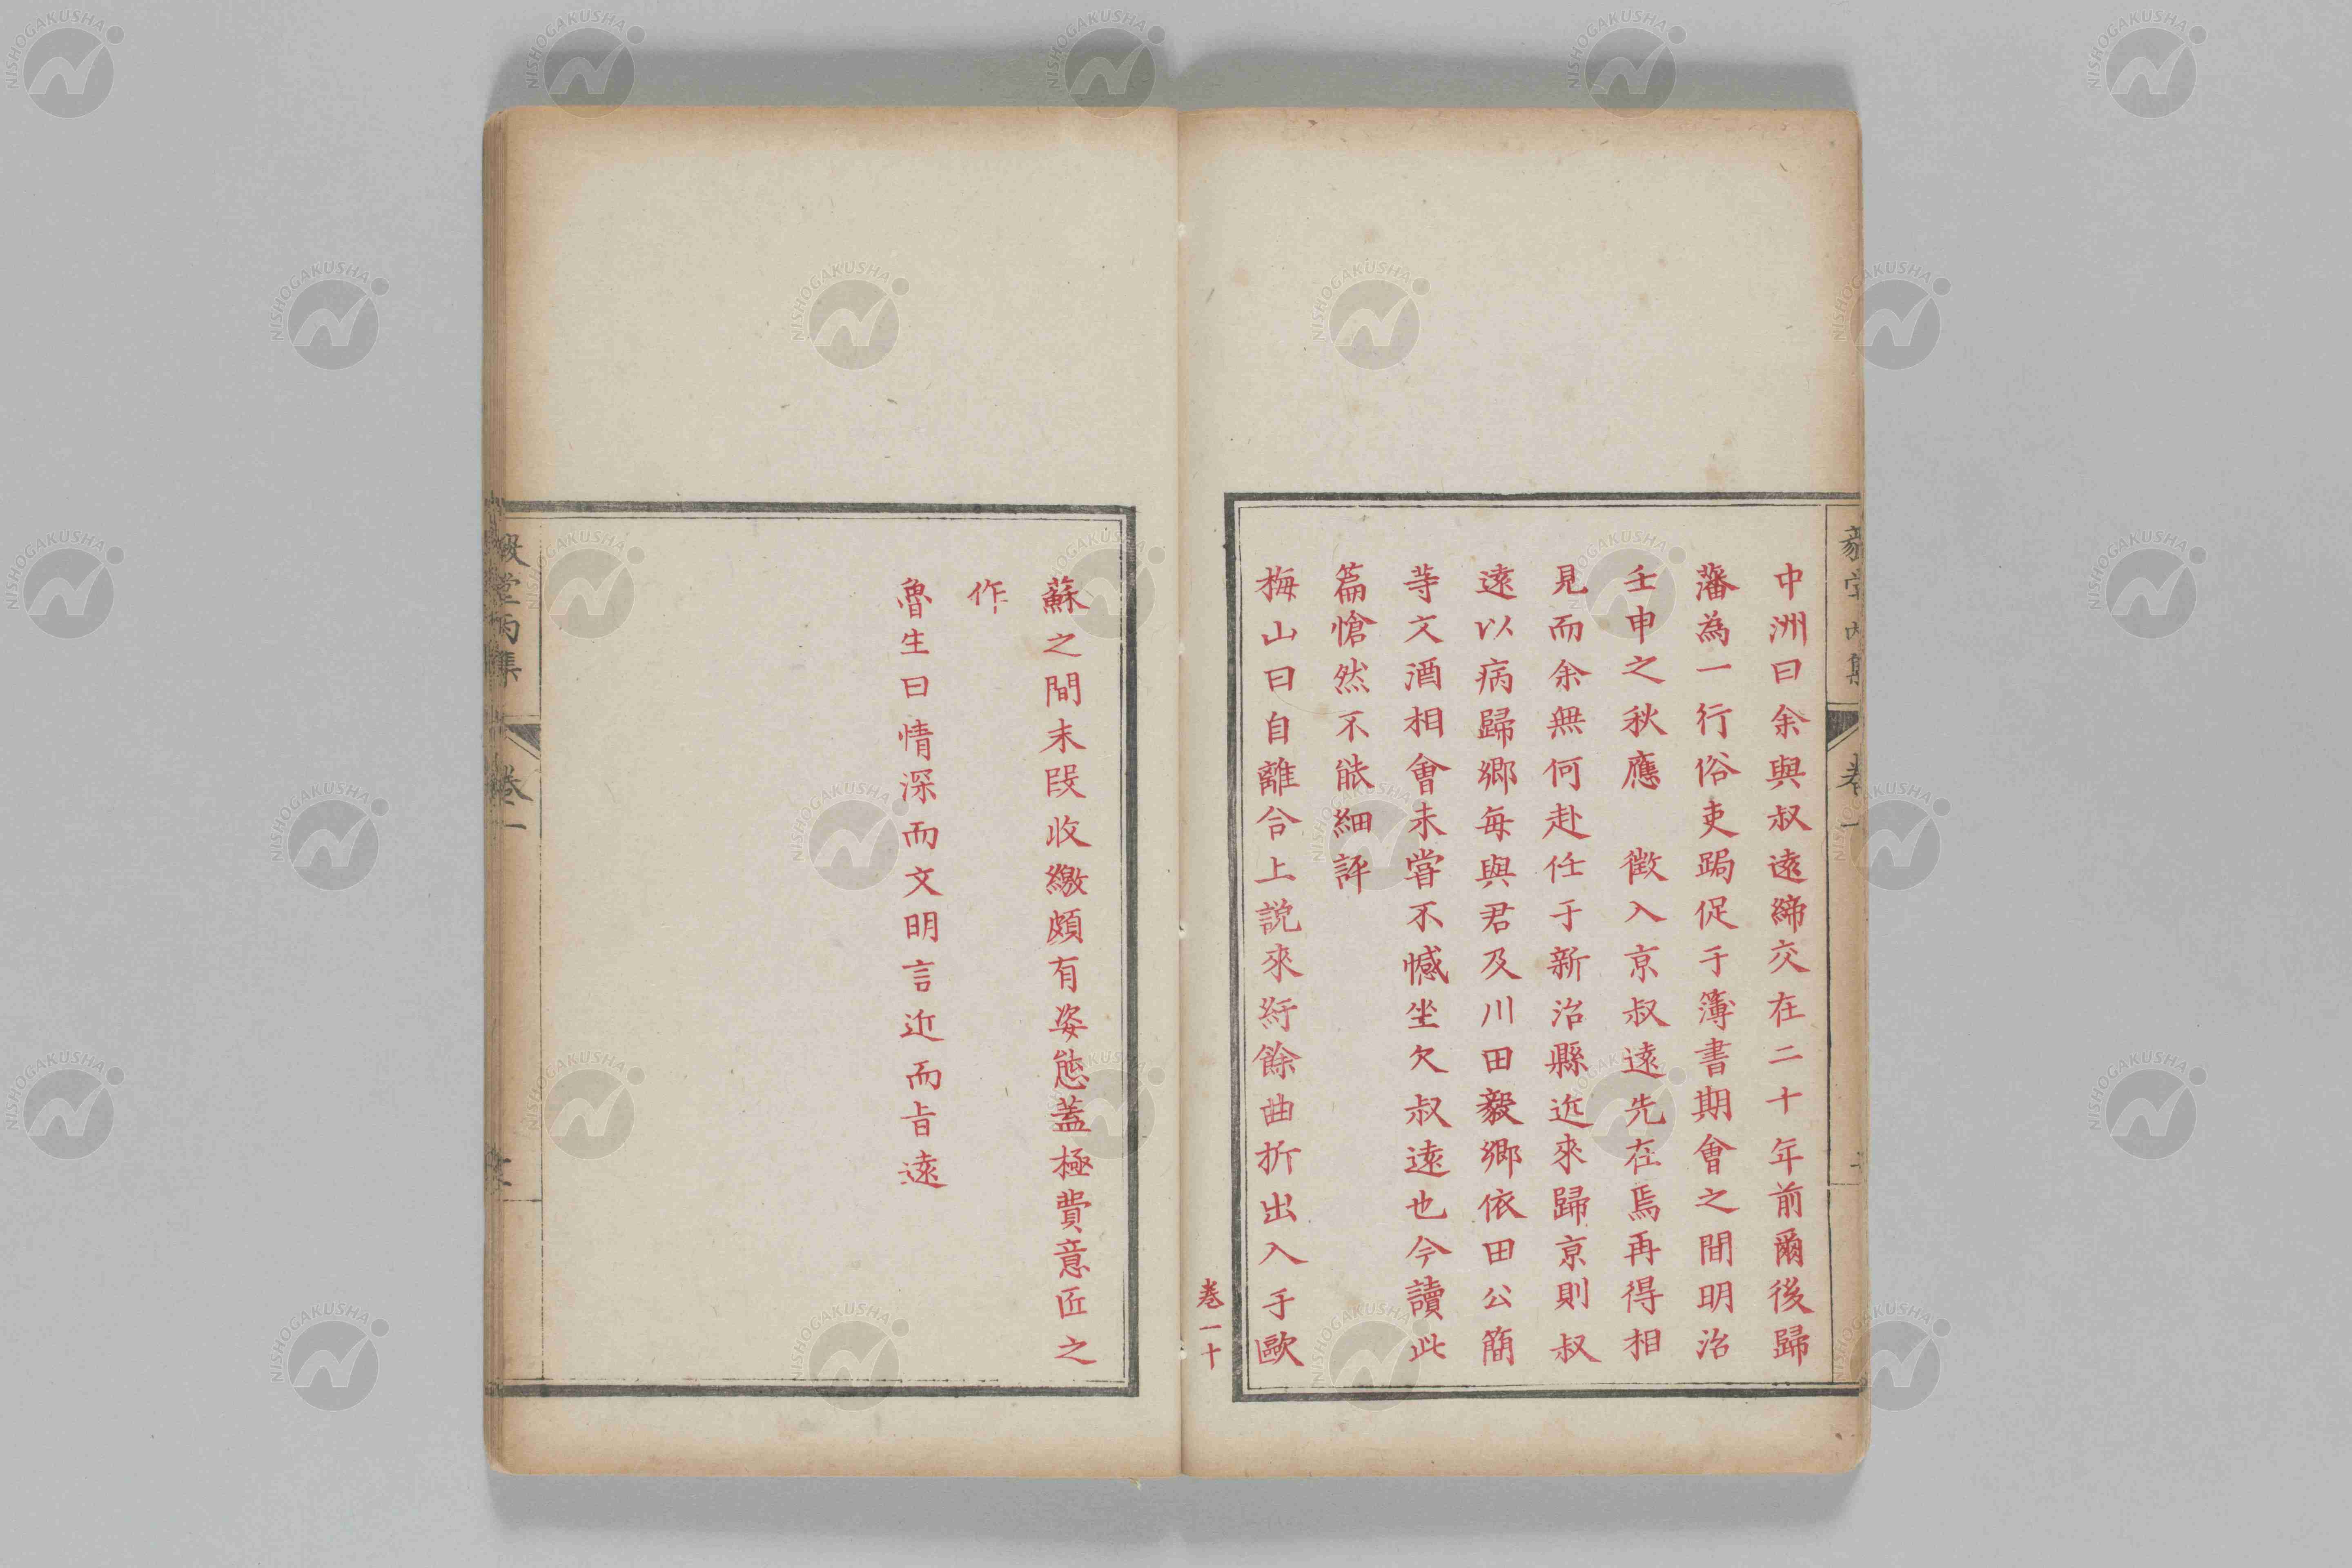 中洲曰余與叔遠締交在二十年前爾後歸
藩為一行俗吏跼促于簿書期會之間明治
壬申之秋應　徵入京叔遠先在焉再得相
見而余無何赴任于新治縣近來歸京則叔
遠以病歸鄉每與君及川田毅鄉依田公簡
等文酒相會未嘗不憾坐欠叔遠也今讀此
篇愴然不能細評
梅山曰自離合上説來紆餘曲折出入于歐
卷一十
蘇之間末段收繳頗有姿態蓋極費意匠之
作
魯生曰情深而文明言近而旨遠
毅堂丙集
卷一
NISHOGAKUSHA